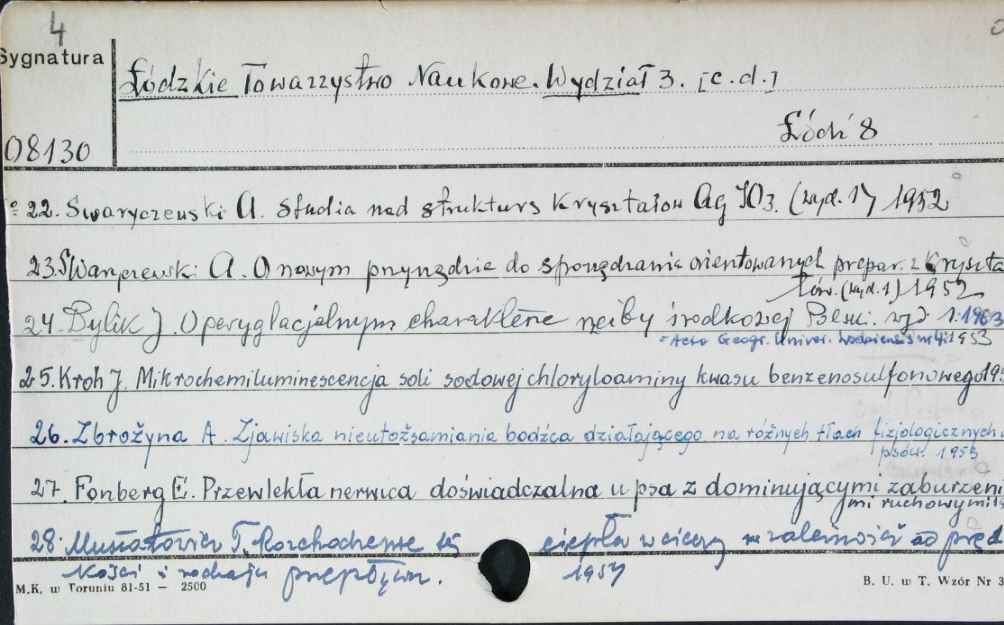 4
Sygnatura
Łódzkie Towarzystwo Naukowe. Wydział 3. [c.d.]
Łódź 8
08130
22. Swaryczewski A. Studia nad strukturą kryształów Ag JO3. (wyd. 1) 1952
23. Swaryczewski A. O nowym przyrządzie do sporządzania orientowanych prepar. z kryszta
łów. (wyd. 1) 1952
24. Bylik J. O peryglacjalnym charakterze rzeźby środkowej Polski. wyd 1. 1963
= Acta Geogr. Univer. Lodziensis nr 4. 1953
25. Kroh J. Mikrochemiluminescencja soli sodowej chloryloaminy kwasu benzenosulfonowego 195
26. Zbrożyna A. Zjawiska nieutożsamiania bodźca działającego na różnych tłach fizjologicznych
psów. 1953
27. Fonberg E. Przewlekła nerwica doświadczalna u psa z dominującymi zaburzeni
mi ruchowymi
28. T. Rozchodzenie się ciepła w cieczy w zależności od pręd
kości i rodzaju przepływu. 1954
M.K. w Toruniu 81-51 — 2500
B. U. w T. Wzór Nr 3